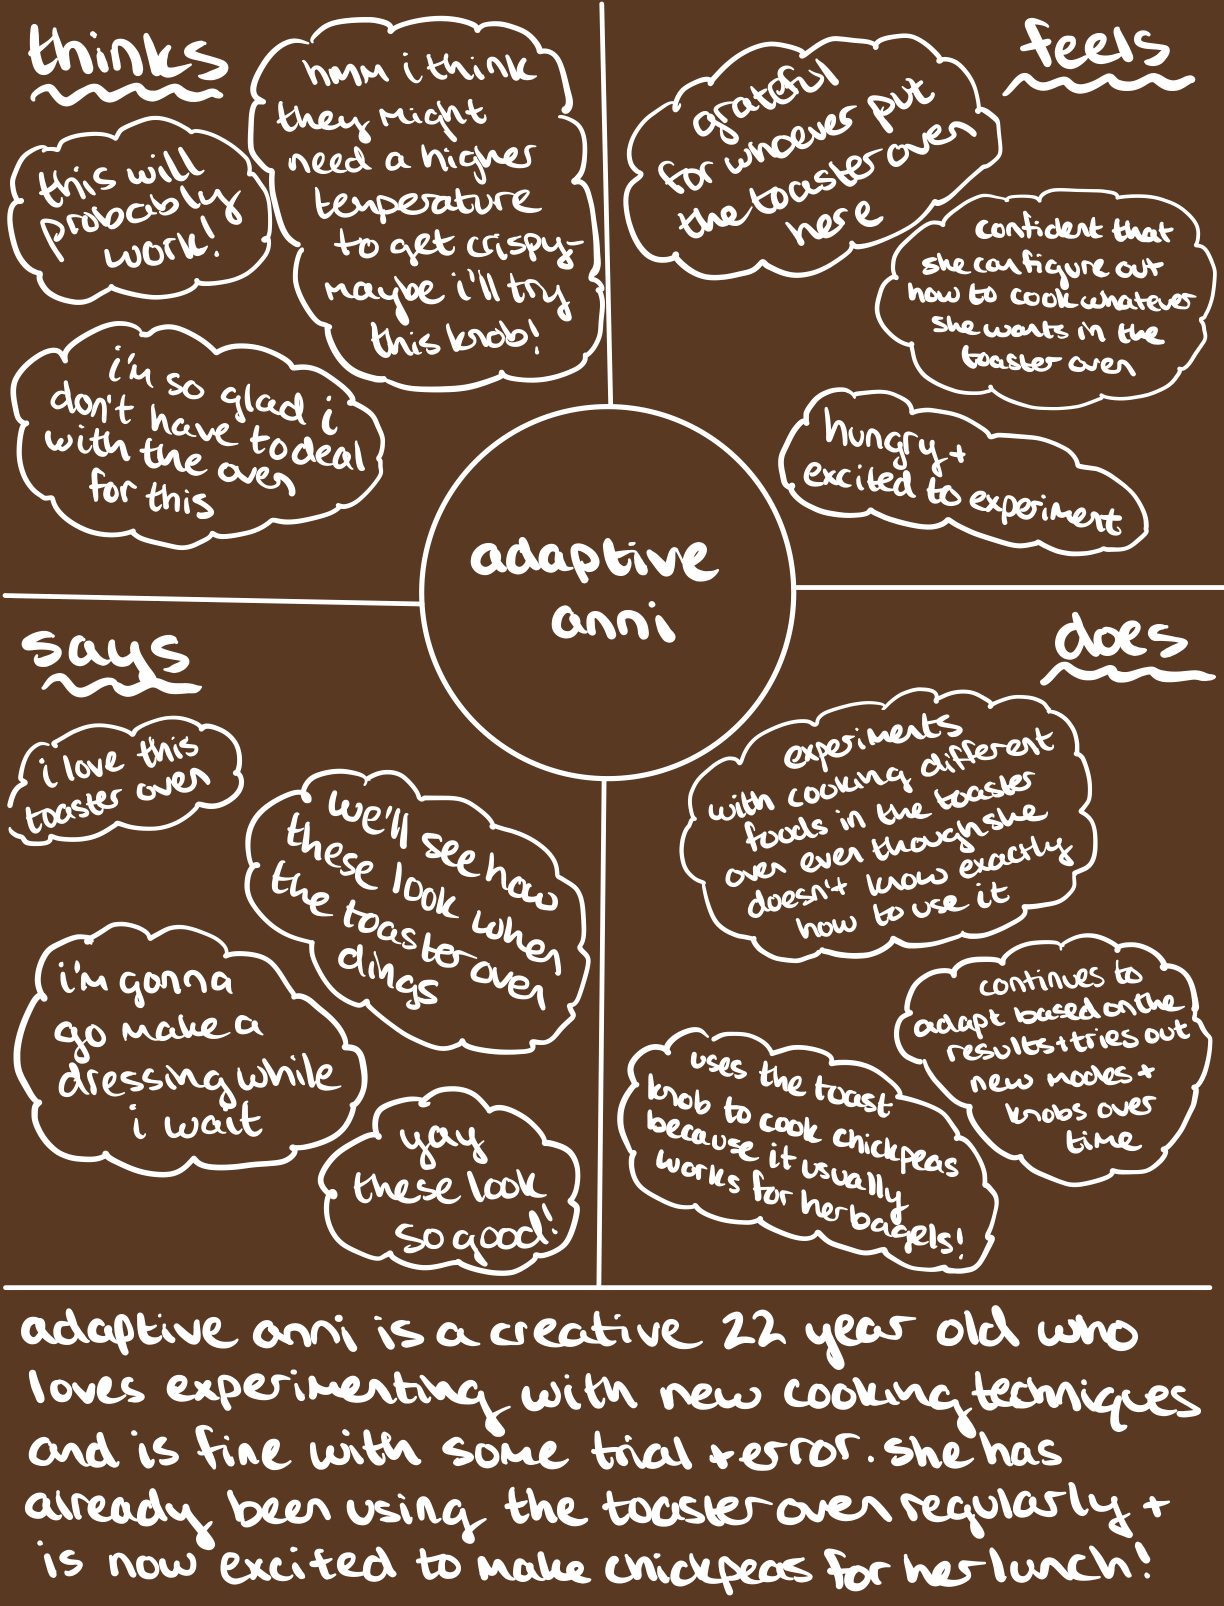 thinks
hmm i think
they might
need a higher
temperature
to get crispy-
maybe i'll try
this knob!
this will
probably
work!
i'm so glad i
don't have to deal
with the oven
for this
feels
grateful
for whoever put
the toaster oven
here
confident that
she can figure out
how to cook whatever
she wants in the
toaster oven
hungry +
excited to experiment
adaptive
anni
says
i love this
toaster oven
we'll see how
these look when
the toaster oven
dings
i'm gonna
go make a
dressing while
i wait
yay
these look
so good!
does
experiments
with cooking different
foods in the toaster
oven even though she
doesn't know exactly
how to use it
continues to
adapt based on the
results + tries out
new modes +
knobs over
time
uses the toast
knob to cook chickpeas
because it usually
works for her bagels!
adaptive anni is a creative 22 year old who
loves experimenting with new cooking techniques
and is fine with some trial + error. she has
already been using the toaster oven regularly +
is now excited to make chickpeas for her lunch!